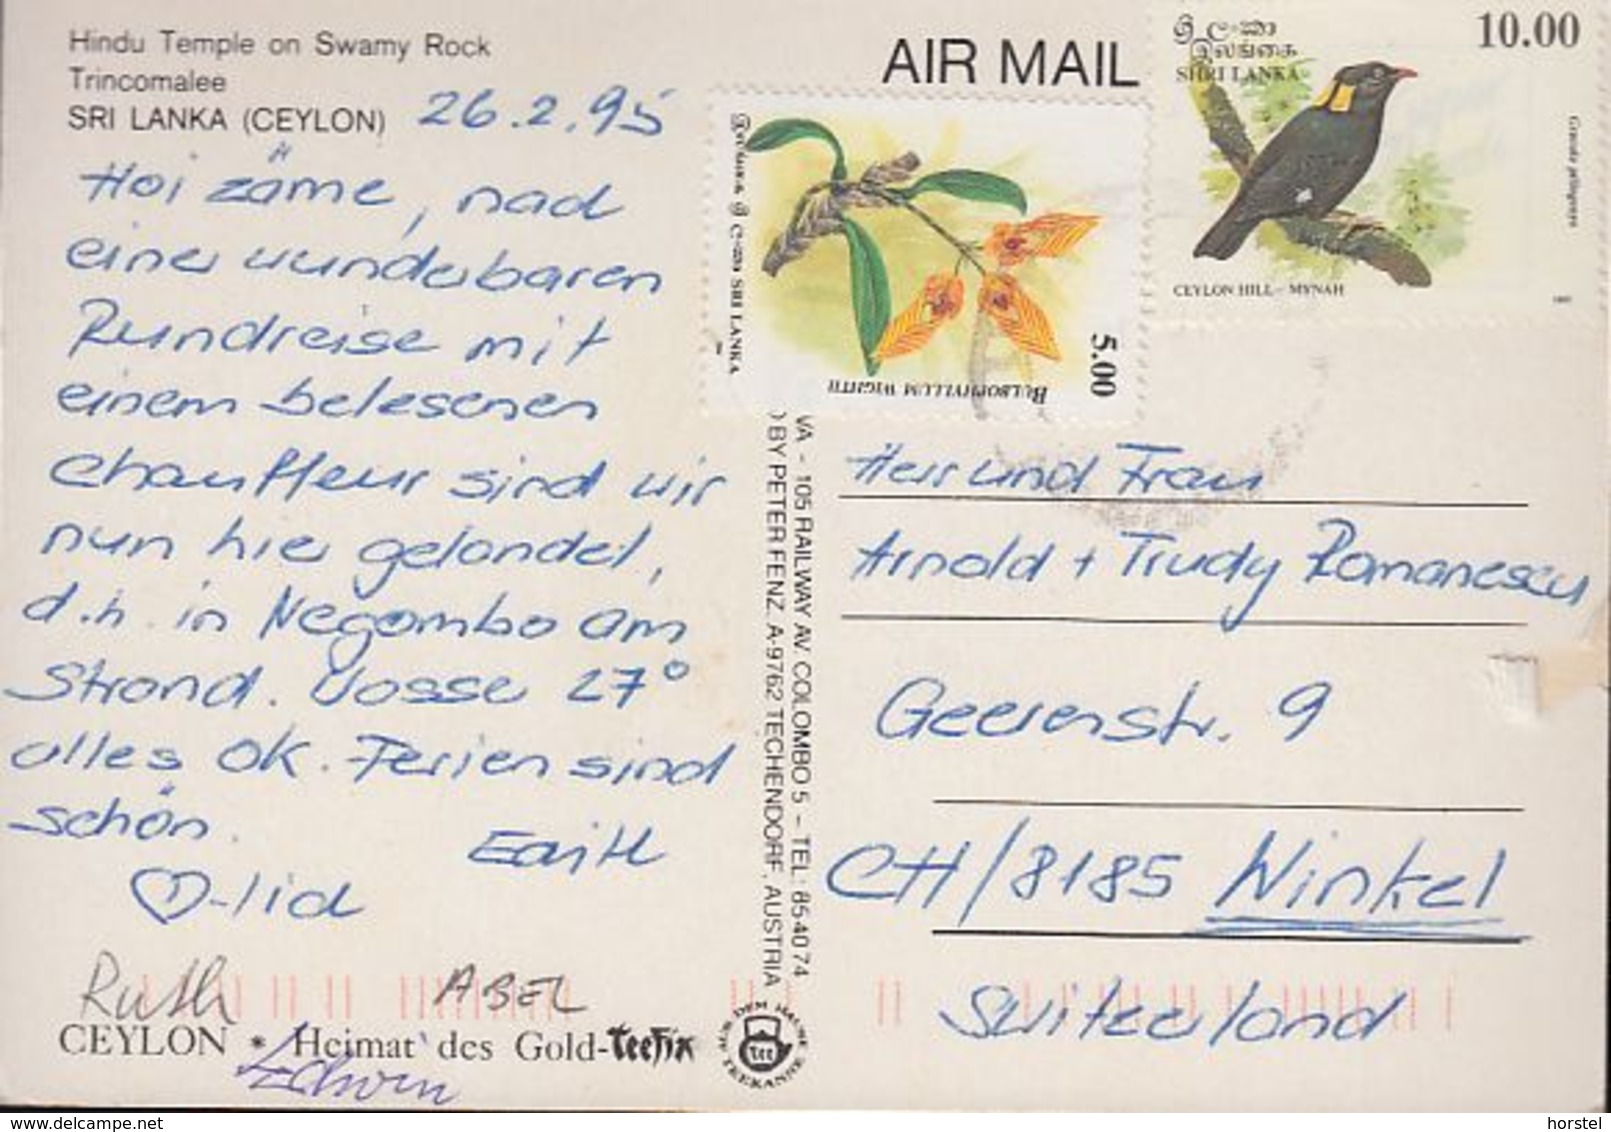 Hindu Temple on Swamy Rock
Trincomalee
SRI LANKA (CEYLON) 26.2.95
AIR MAIL
Hoi zäme, nad
einer wunderbaren
Rundreise mit
einem belesenen
Chauffeur sind wir
nun hier gelandet,
d.h. in Negombo am
Strand. Wasser 27°
alles OK. Ferien sind
schön.
Edith
♡-lid
Ruth ABEL
CEYLON * Heimat des Gold-Teefix
AUS DEM HAUSE TEEKANNE
Tee
VA - 105 RAILWAY AV. COLOMBO 5 - TEL: 85 40 74
BY PETER FENZ. A-9762 TECHENDORF, AUSTRIA
ශ්‍රී ලංකා
SRI LANKA
5.00
BULBOPHYLLUM WIGHTII
ශ්‍රී ලංකා
இலங்கை
SHRI LANKA
10.00
Gracula ptilogenys
CEYLON HILL - MYNAH
Herr und Frau
Arnold + Trudy Romanescu
Geerenstr. 9
CH/8185 Winkel
Switzerland
www.delcampe.net
horstel